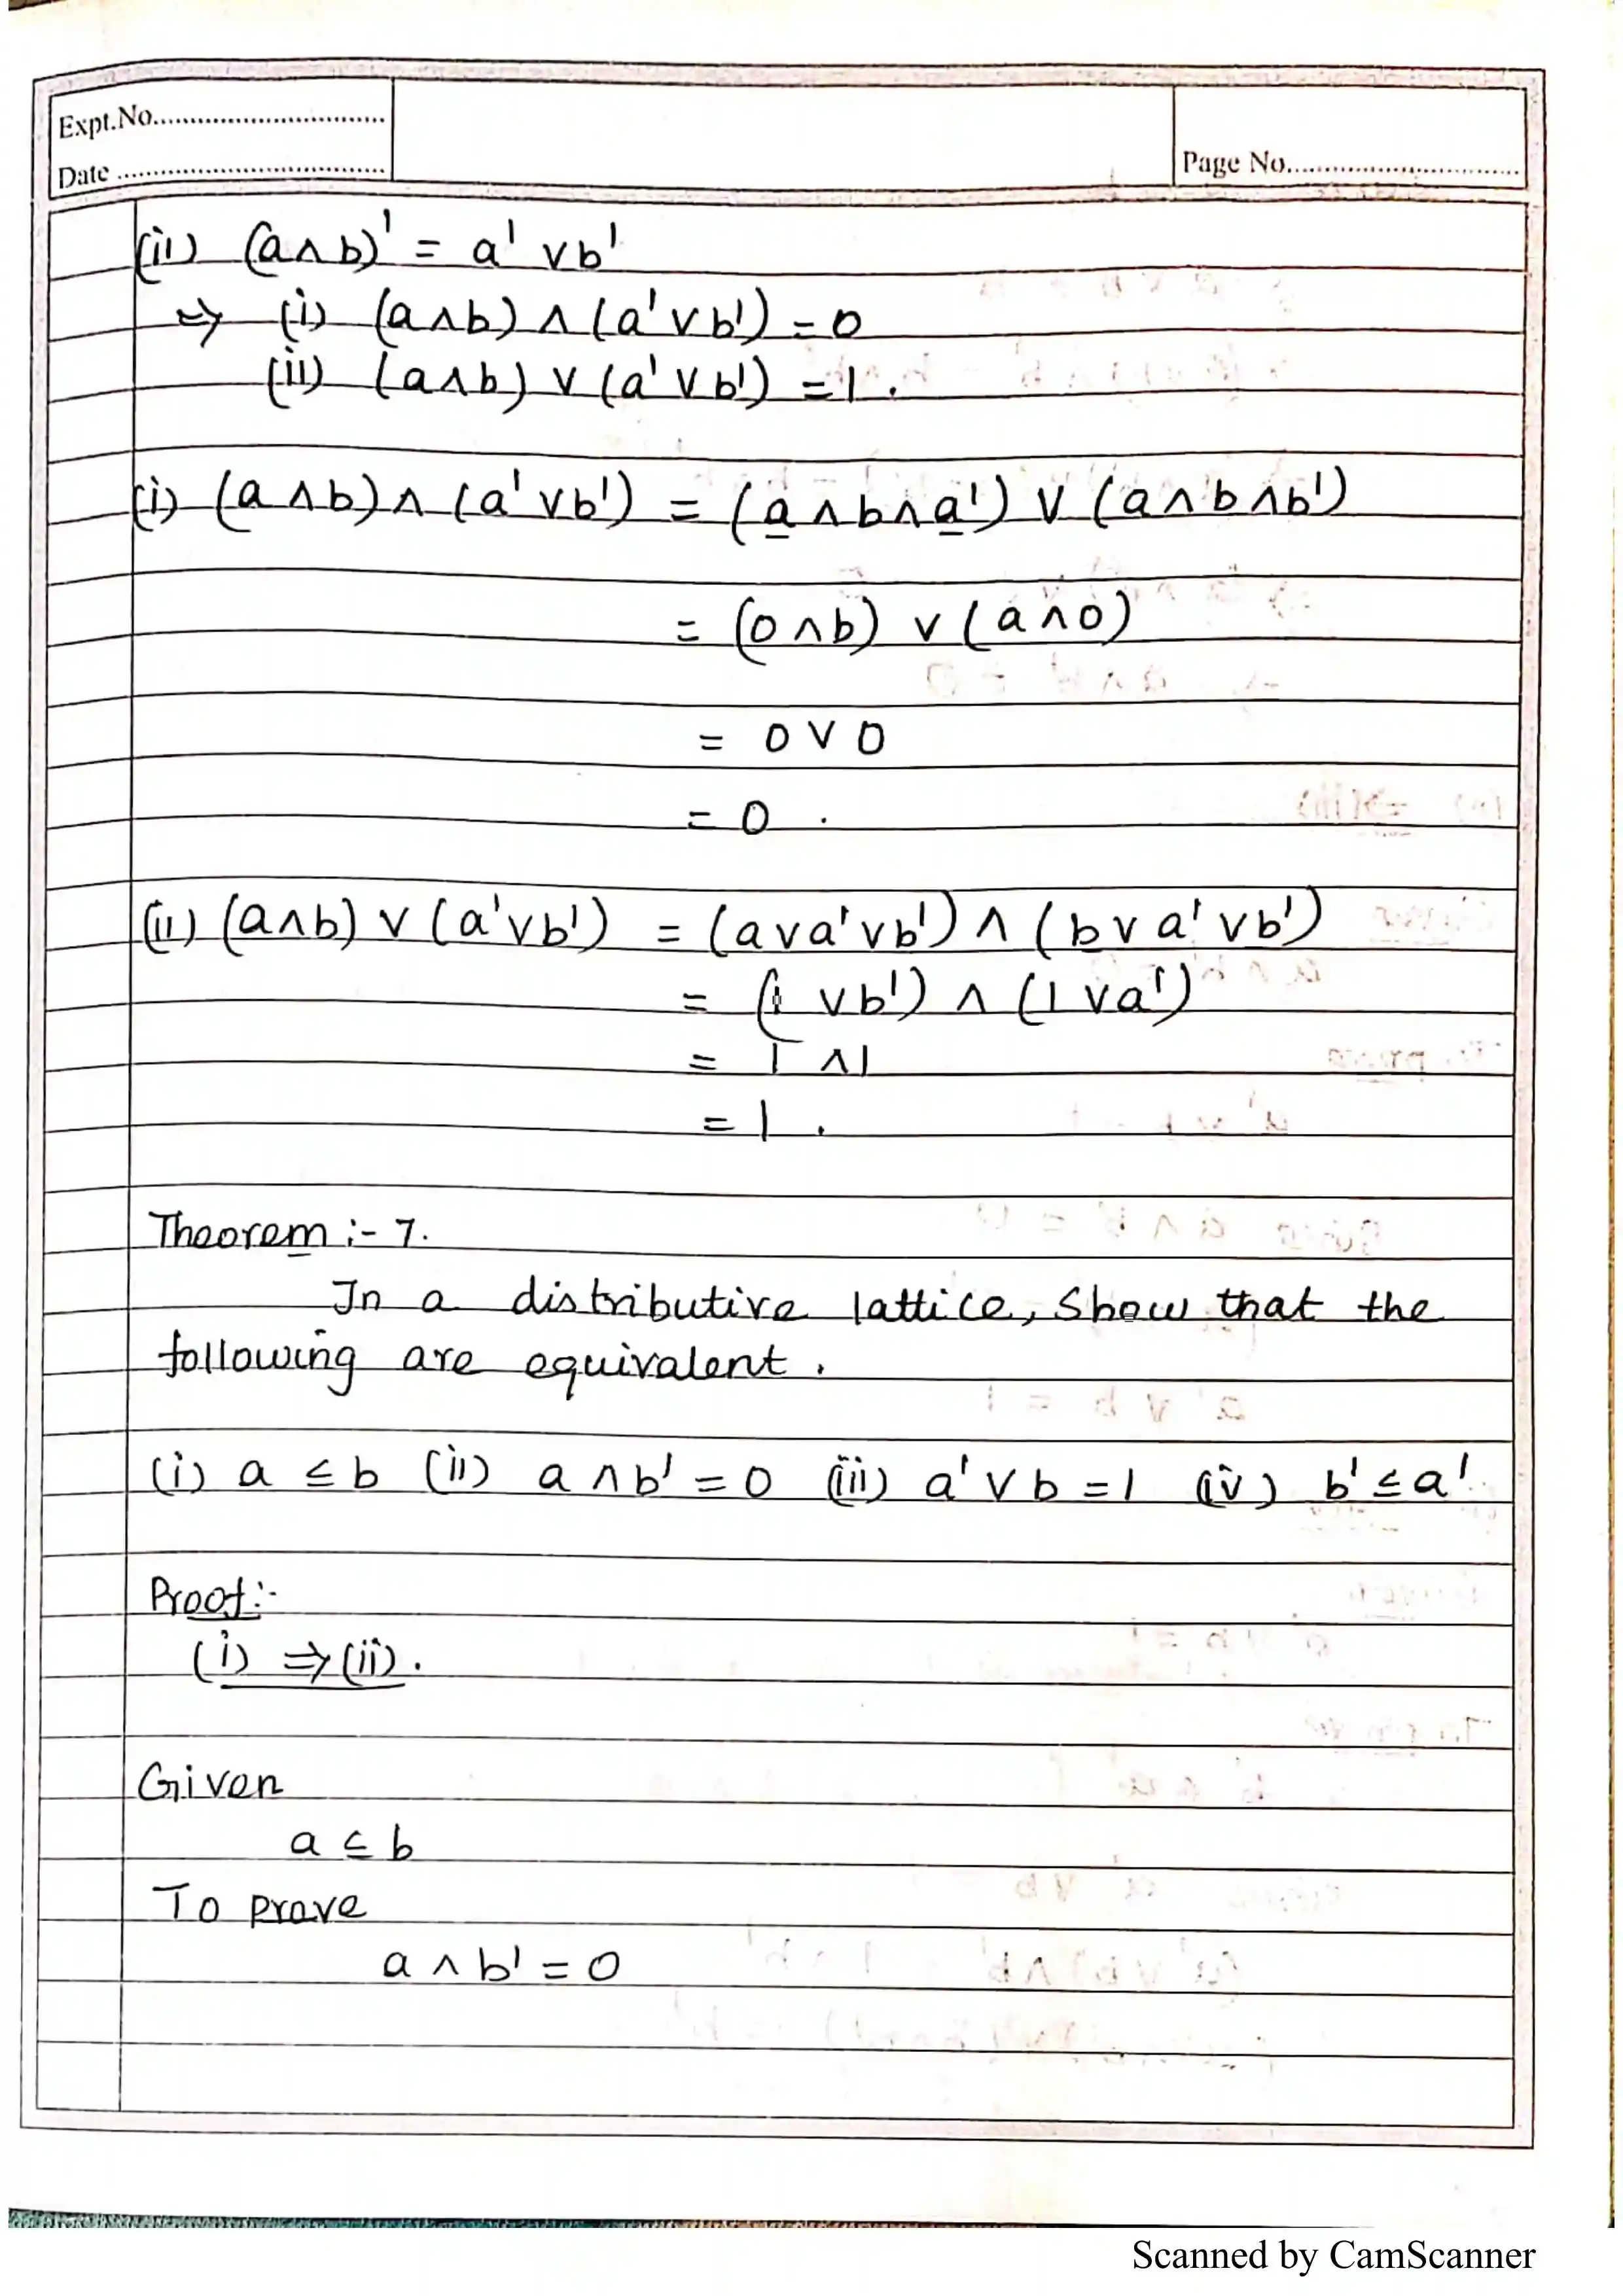 Expt.No...............................
Date ...................................
Page No...............................
(ii) (a∧b)' = a' ∨b'
⇒ (i) (a∧b) ∧ (a' ∨ b') = 0
(ii) (a∧b) ∨ (a' ∨ b') = 1.
(i) (a ∧b)∧ (a' ∨b') = (a ∧b∧a') ∨ (a∧b∧b')
= (0∧b) ∨ (a∧0)
= 0 ∨ 0
= 0 .
(ii) (a∧b) ∨ (a'∨b') = (a∨a'∨b') ∧ (b∨ a' ∨b')
= (1 ∨b') ∧ (1 ∨a')
= 1 ∧1
= 1 .
Theorem :- 7.
In a distributive lattice, Show that the
following are equivalent.
(i) a ≤ b (ii) a ∧ b' = 0 (iii) a' ∨ b = 1 (iv) b' ≤ a'.
Proof:-
(i) ⇒ (ii).
Given
a ≤ b
To prove
a ∧ b' = 0
Scanned by CamScanner